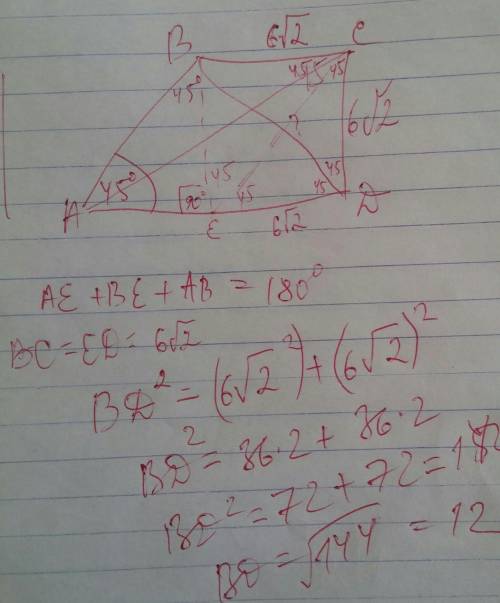 B 6√2 C
45° 45 45
? 6√2
45° 45 45
A 90° 45 45 D
E 6√2
AE + BE + AB = 180°
BC = ED = 6√2
BD² = (6√2²) + (6√2)²
BD² = 36·2 + 36·2
BD² = 72 + 72 =
BD = √144 = 12